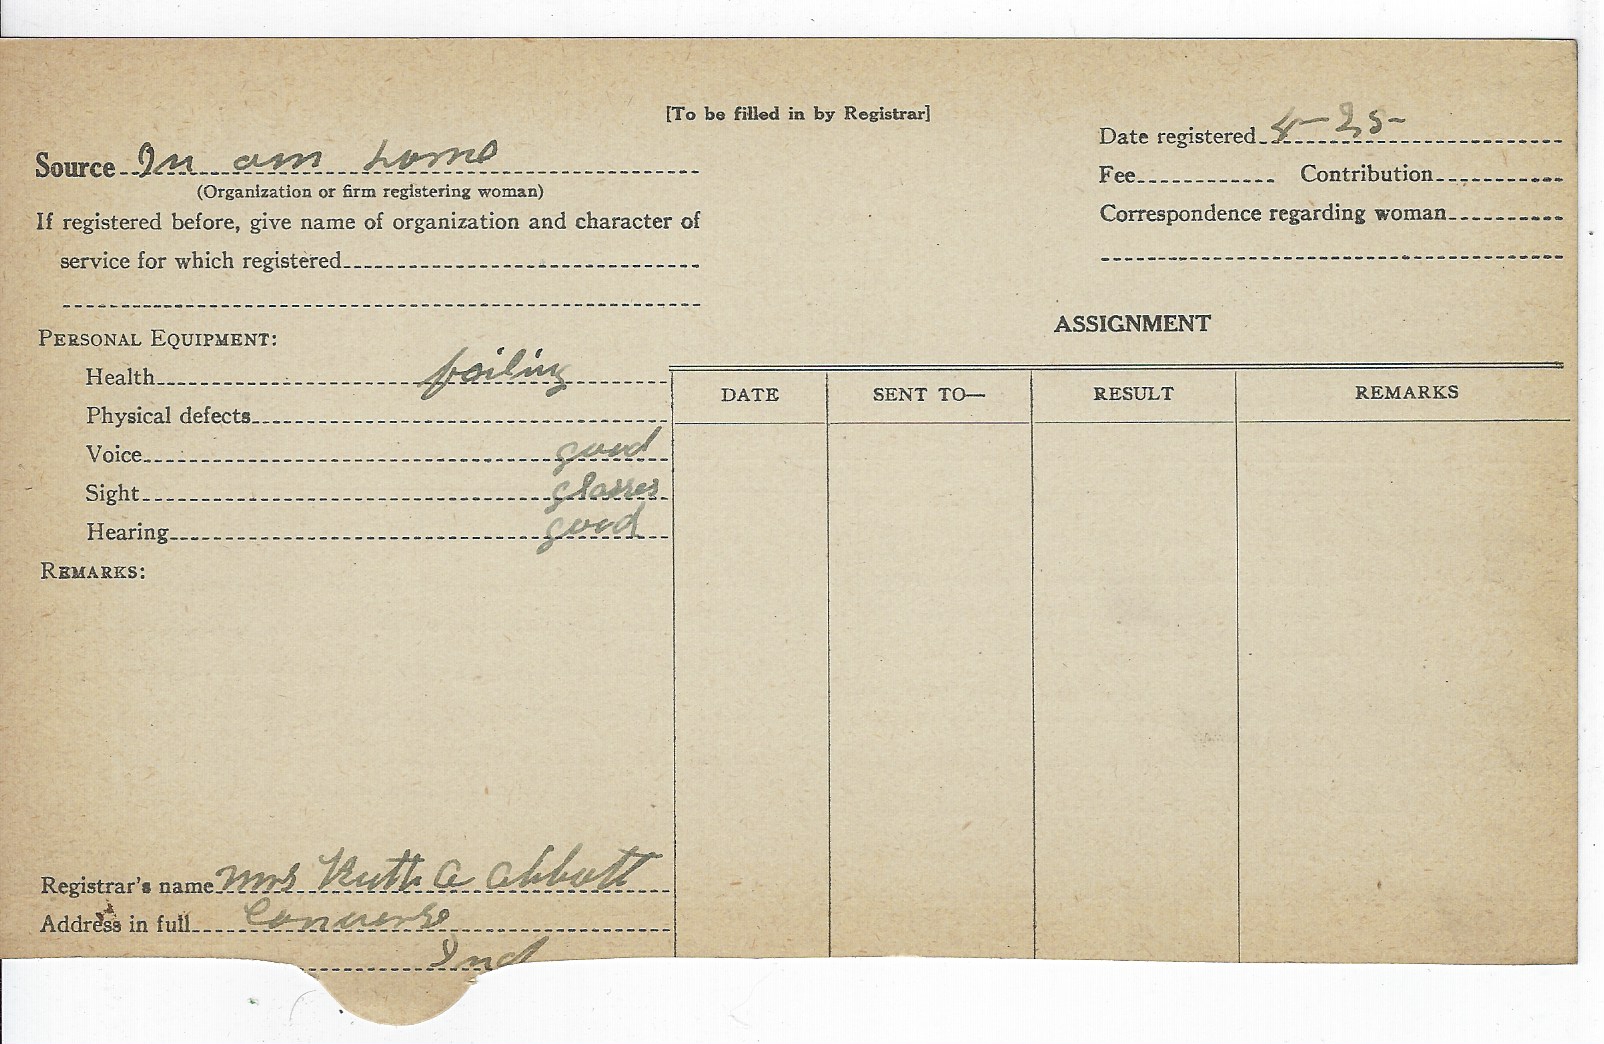 [To be filled in by Registrar]
Date registered 4-25-
Source In own home
(Organization or firm registering woman)
Fee Contribution
If registered before, give name of organization and character of
Correspondence regarding woman
service for which registered
ASSIGNMENT
PERSONAL EQUIPMENT:
Health failing
DATE SENT TO— RESULT REMARKS
Physical defects
Voice good
Sight glasses
Hearing good
REMARKS:
Registrar's name Mrs Ruth A Abbott
Address in full Converse
Ind